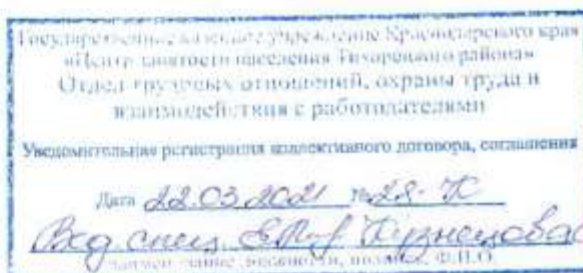 Государственное казенное учреждение Краснодарского края
«Центр занятости населения Тихорецкого района»
Отдел трудовых отношений, охраны труда и
взаимодействия с работодателями
Уведомительная регистрация коллективного договора, соглашения
Дата 22.03.2021 №28-К
Вед. спец. Кузнецова
наименование должности, подпись, Ф.И.О.